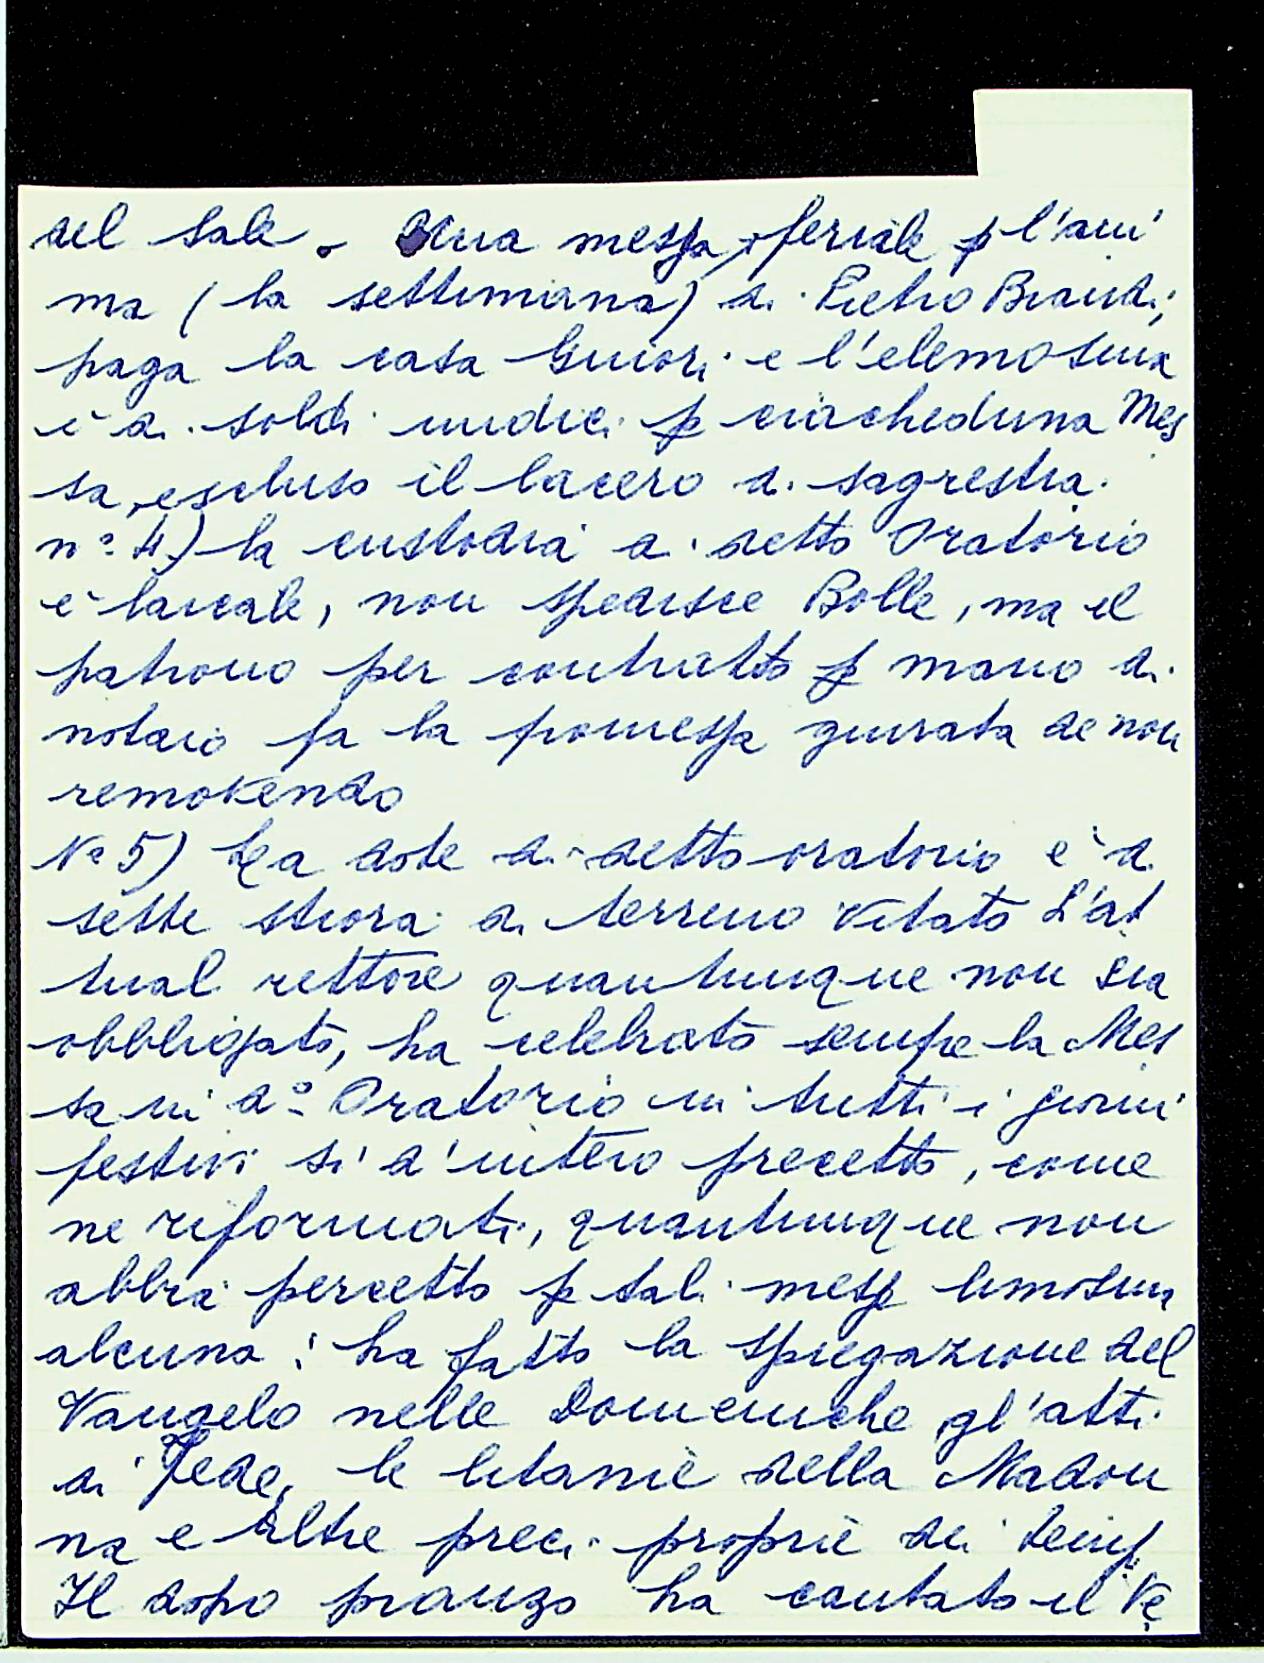 del sale. Una messa feriale p l'ani
ma (la settimana) di Pietro Brandi;
paga la casa Guiori e l'elemosina
è di soldi undici p ciascheduna Mes
sa, escluso il lacero di sagrestia.
n° 4) la custodia di detto Oratorio
e' laicale, non spedisce Bolle, ma il
patrono per contratto p mano di
notaio fa la promessa giurata de non
removendo
N° 5) La dote di detto oratorio e' di
sette stiora di terreno vitato L'at
tual rettore quantunque non sia
obbligato, ha celebrato sempre la Mes
sa in d° Oratorio in tutti i giorni
festivi si d'intero precetto, come
ne riformati, quantunque non
abbia percetto p tali messe limosina
alcuna; ha fatto la spiegazione del
Vangelo nelle Domeniche gl'atti
di Fede, le litanie della Madon
na e altre preci proprie dei temp
Il dopo pranzo ha cantato il Ve